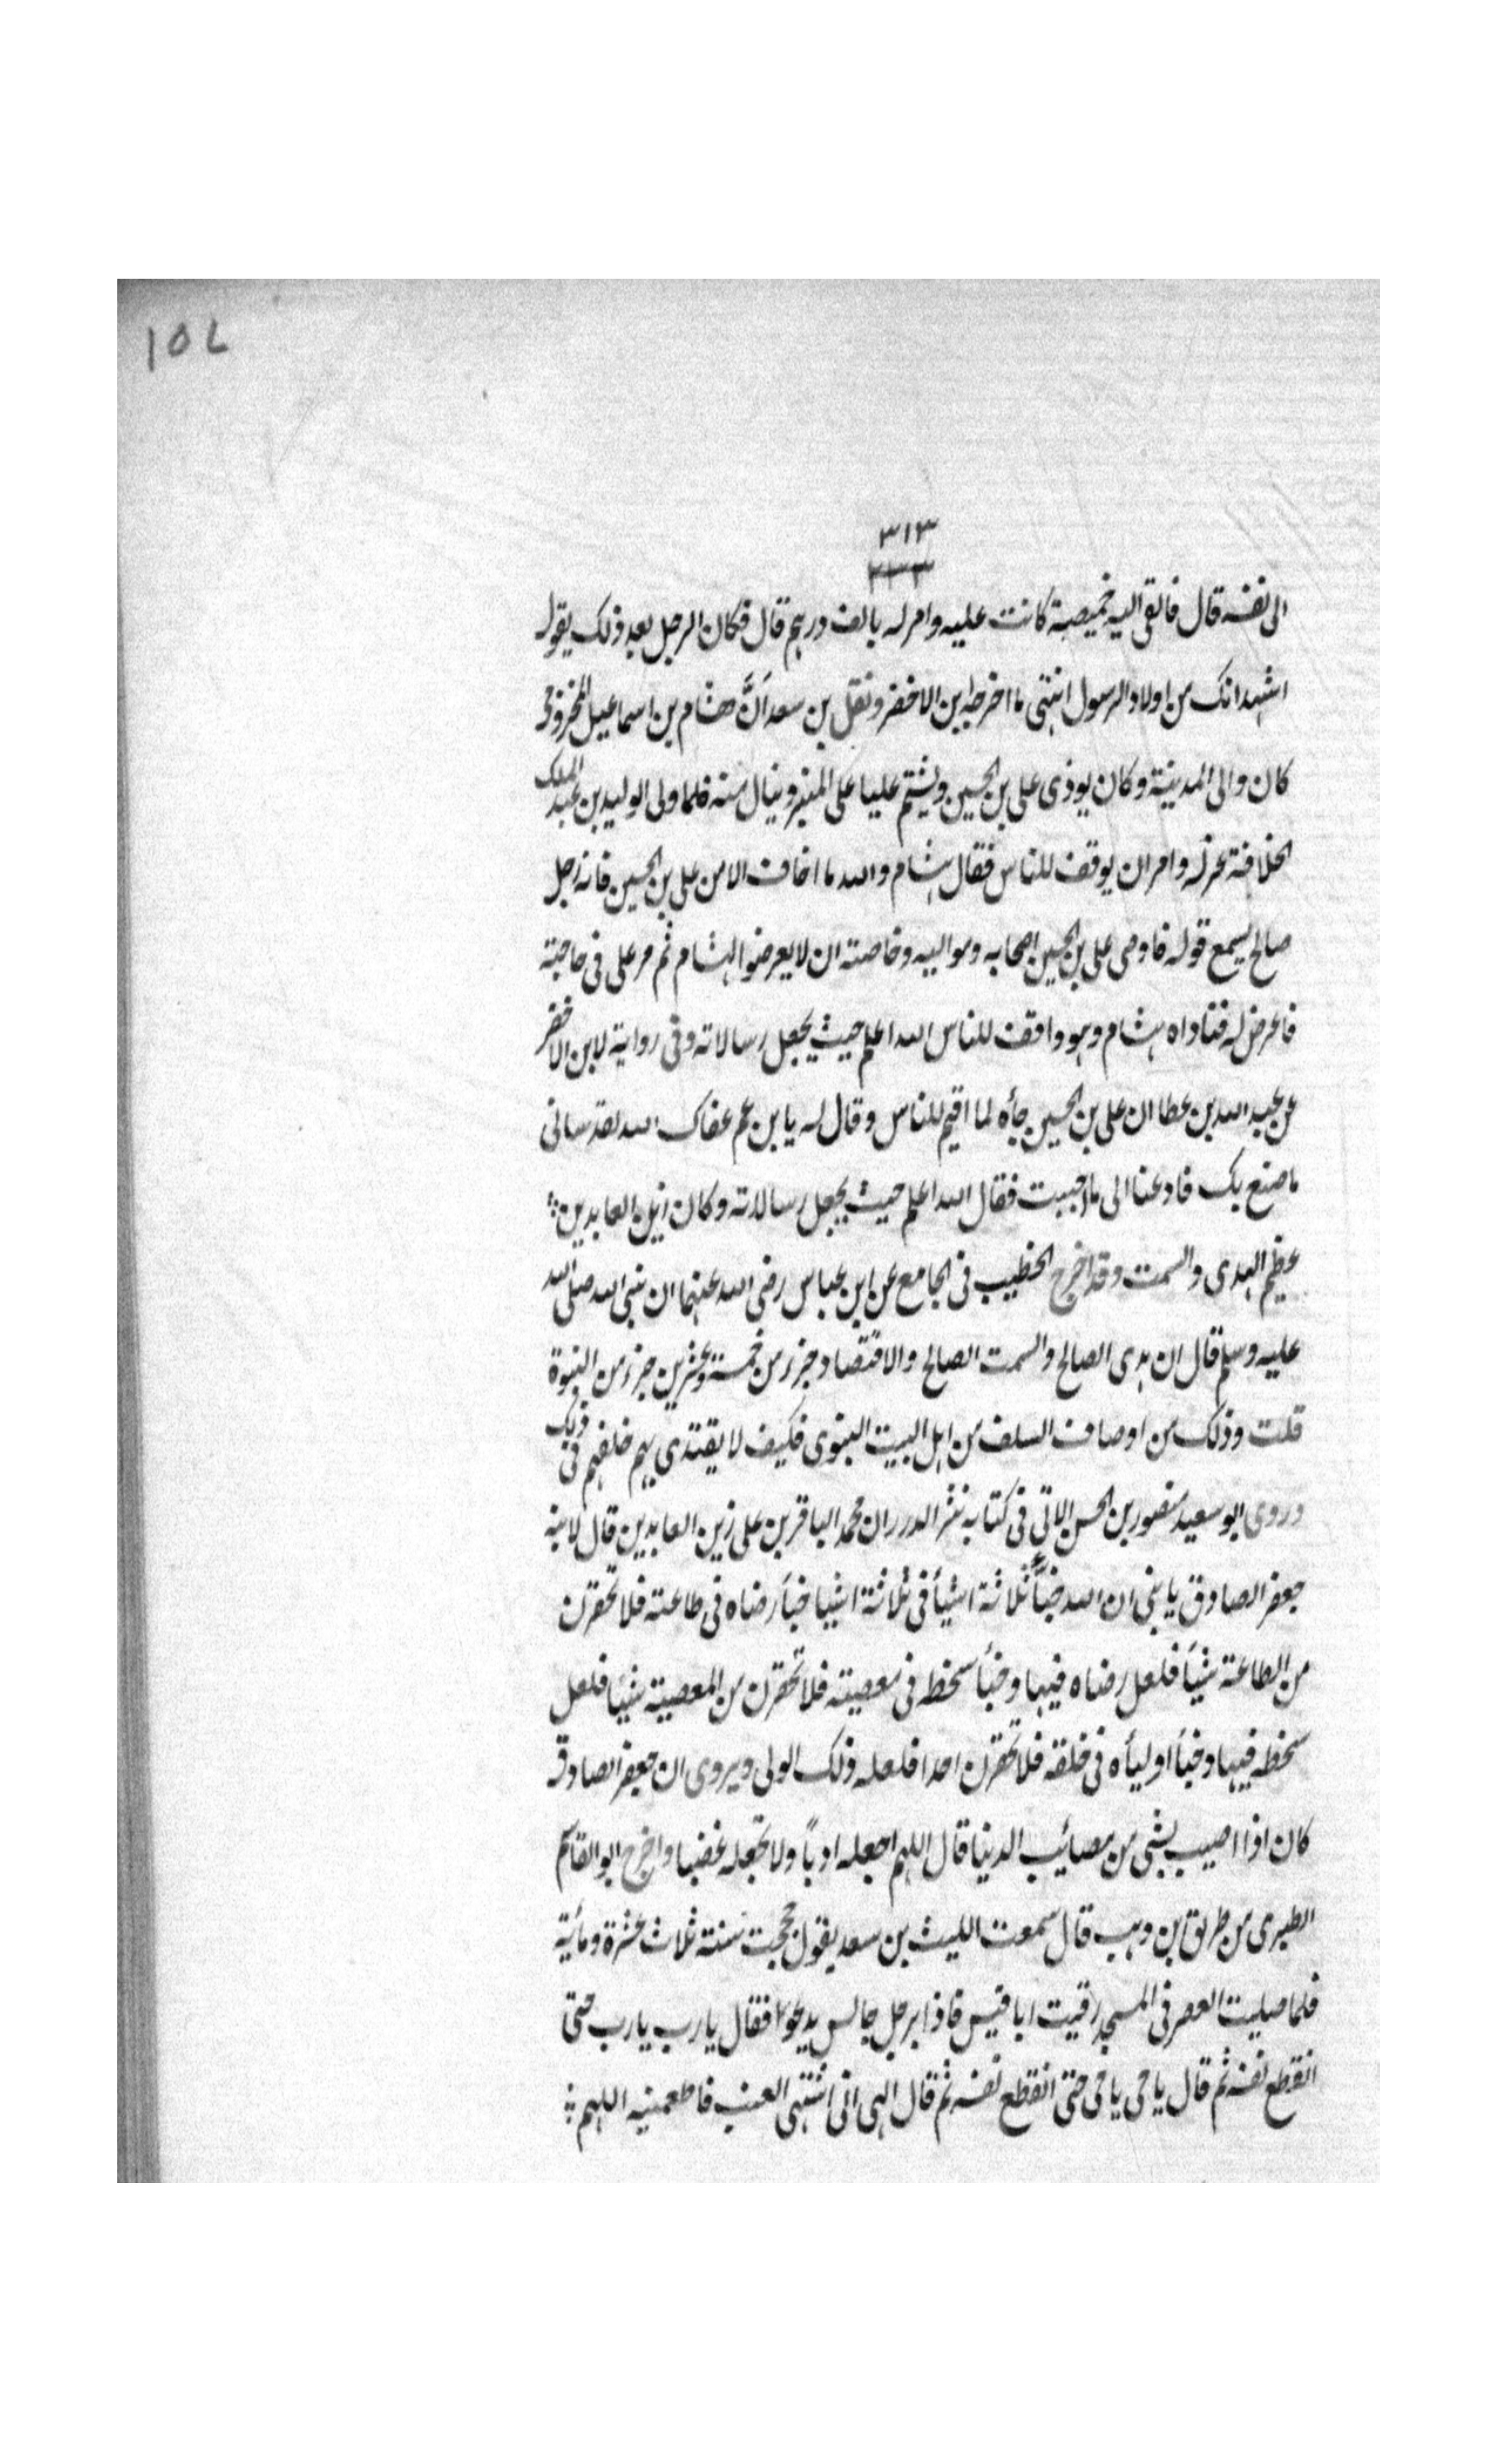 ١٥٧
٣١٣
٣٣٣
الى نفسه قال فالقى اليه خميصة كانت عليه وامر له بالف درهم قال فكان الرجل بعد ذلك يقول
اشهد انك من اولاد الرسول انتهى ما اخرجه ابن الاخضر ونقل بن سعد اَنَّ هشام بن اسماعيل المخزومى
كان والى المدينة وكان يوذى على بن الحسين ويشتم عليا على المنبر وينال منه فلما ولى الوليد بن عبد الملك
الخلافة عزله وامر ان يوقف للناس فقال هشام والله ما اخاف الا من على بن الحسين فانه رجل
صالح يسمع قوله فاوصى على بن الحسين اصحابه ومواليه وخاصته ان لا يعرضوا لهشام ثم مر على فى حاجته
فاعرض له فناداه هشام وهو واقف للناس الله اعلم حيث يجعل رسالاته وفى رواية لابن الاخضر
عن عبد الله بن عطا ان على بن الحسين جأه لما اقيم للناس وقال له يا بن عم عفاك الله لقد سانى
ما صنع بك فادعنا الى ما احببت فقال الله اعلم حيث يجعل رسالاته وكان زين العابدين
عظيم الهدى والسمت وقد اخرج الخطيب فى الجامع عن ابن عباس رضى الله عنهما ان نبى الله صلى الله
عليه وسلم قال ان هدى الصالح والسمت الصالح والاقتصاد جزء من خمسة وعشرين جزء من النبوة
قلت وذلك من اوصاف السلف من اهل البيت النبوى فكيف لا يقتدى بهم خلفهم فى ذلك
وروى ابو سعيد منصور بن الحسن الاتى فى كتابه نثر الدرر ان محمد الباقر بن على زين العابدين قال لابنه
جعفر الصادق يا بنى ان الله خبأَّ ثلاثة اشيأ فى ثلاثة اشيا خبأ رضاه فى طاعته فلا تحقرن
من الطاعة شيئا فلعل رضاه فيها وخبأ سخطه فى معصيته فلا تحقرن من المعصية شيئا فلعل
سخطه فيها وخبأ اوليأه فى خلقه فلا تحقرن احدا فلعله ذلك الولى ويروى ان جعفر الصادق
كان اذا اصيب بشى من مصائب الدينا قال اللهم اجعله ادباً ولا تجعله غضبا واخرج ابو القاسم
الطبرى من طريق بن وهب قال سمعت الليث بن سعد يقول حججت سنة ثلاث عشرة ومأية
فلما صليت العصر فى المسجد رقيت ابا قيس فاذا برجل جالس يدعو فقال يا رب يا رب حتى
انقطع نفسه ثم قال يا حى يا حى حتى انقطع نفسه ثم قال الهى انى اشتهى العنب فاطعمنيه اللهم